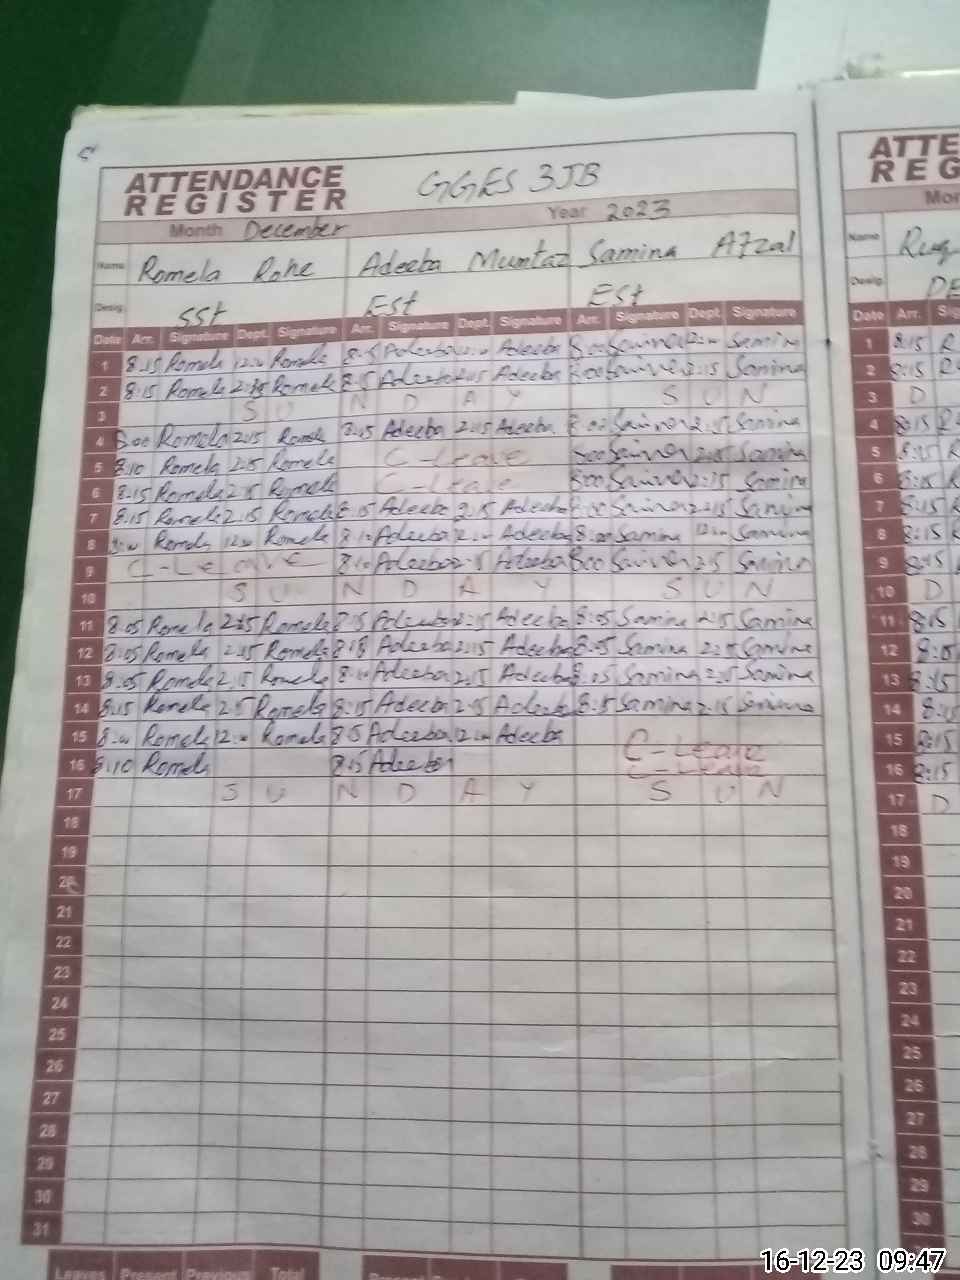 ATTENDANCE
REGISTER
GGES 3JB
Month December Year 2023
Name Romela Rohe Adeeba Mumtaz Samina Afzal
Desig. SST Est Est
Date Arr. Signature Dept. Signature Arr. Signature Dept. Signature Arr. Signature Dept. Signature
1 8:15 Romela 12:00 Romela Adeeba Adeeba 8:00 Samina Samina
2 8:15 Romela Romela Adeeba Adeeba 8:00 Samina Samina
3 S U N D A Y S U N
4 8:00 Romela 2:15 Romela 8:15 Adeeba 2:15 Adeeba 8:00 Samina Samina
5 8:10 Romela 2:15 Romela C-Leave 8:00 Samina 2:15 Samina
6 8:15 Romela 2:15 Romela C-Leave 8:00 Samina 2:15 Samina
7 8:15 Romela 2:15 Romela 8:15 Adeeba 2:15 Adeeba Samina 2:15 Samina
8 8:00 Romela 12:00 Romela 8:10 Adeeba Adeeba 8:00 Samina 12:00 Samina
9 C-Leave 8:10 Adeeba Adeeba 8:00 Samina 2:15 Samina
10 S U N D A Y S U N
11 8:05 Romela 2:15 Romela 8:15 Adeeba 2:15 Adeeba 8:05 Samina 2:15 Samina
12 8:05 Romela 2:15 Romela 8:15 Adeeba 2:15 Adeeba 8:05 Samina Samina
13 8:05 Romela 2:15 Romela 8:10 Adeeba 2:15 Adeeba 8:05 Samina Samina
14 8:15 Romela 2:15 Romela 8:15 Adeeba 2:15 Adeeba 8:15 Samina 2:15 Samina
15 8:00 Romela 12:00 Romela Adeeba 12:00 Adeeba C-Leave
16 8:10 Romela 8:15 Adeeba C-Leave
17 S U N D A Y S U N
18
19
20
21
22
23
24
25
26
27
28
29
30
31
Leaves Present Total Present
ATTE
REG
Mon
Name Ruq
Desig. DE
Date Arr. Sig
1 8:15 R
2 8:15 R
3 D
4 8:15 R
5 8:15 R
6 8:15 R
7 8:15 R
8 8:15 R
9 8:15
10 D
11 8:15
12
13 8:15
14
15 8:15
16 8:15
17 D
18
19
20
21
22
23
24
25
26
27
28
29
30
16-12-23 09:47